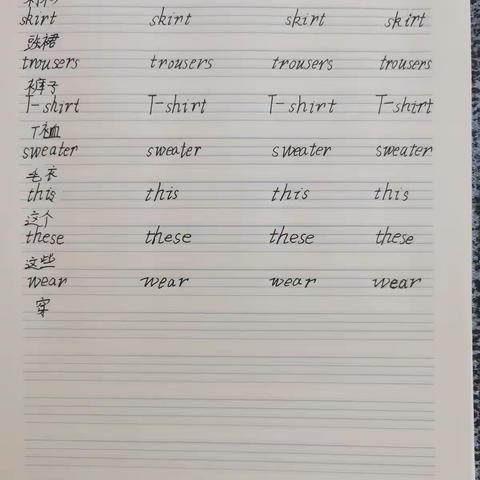 skirt skirt skirt skirt
短裙
trousers trousers trousers trousers
裤子
T-shirt T-shirt T-shirt T-shirt
T恤
sweater sweater sweater sweater
毛衣
this this this this
这个
these these these these
这些
wear wear wear wear
穿